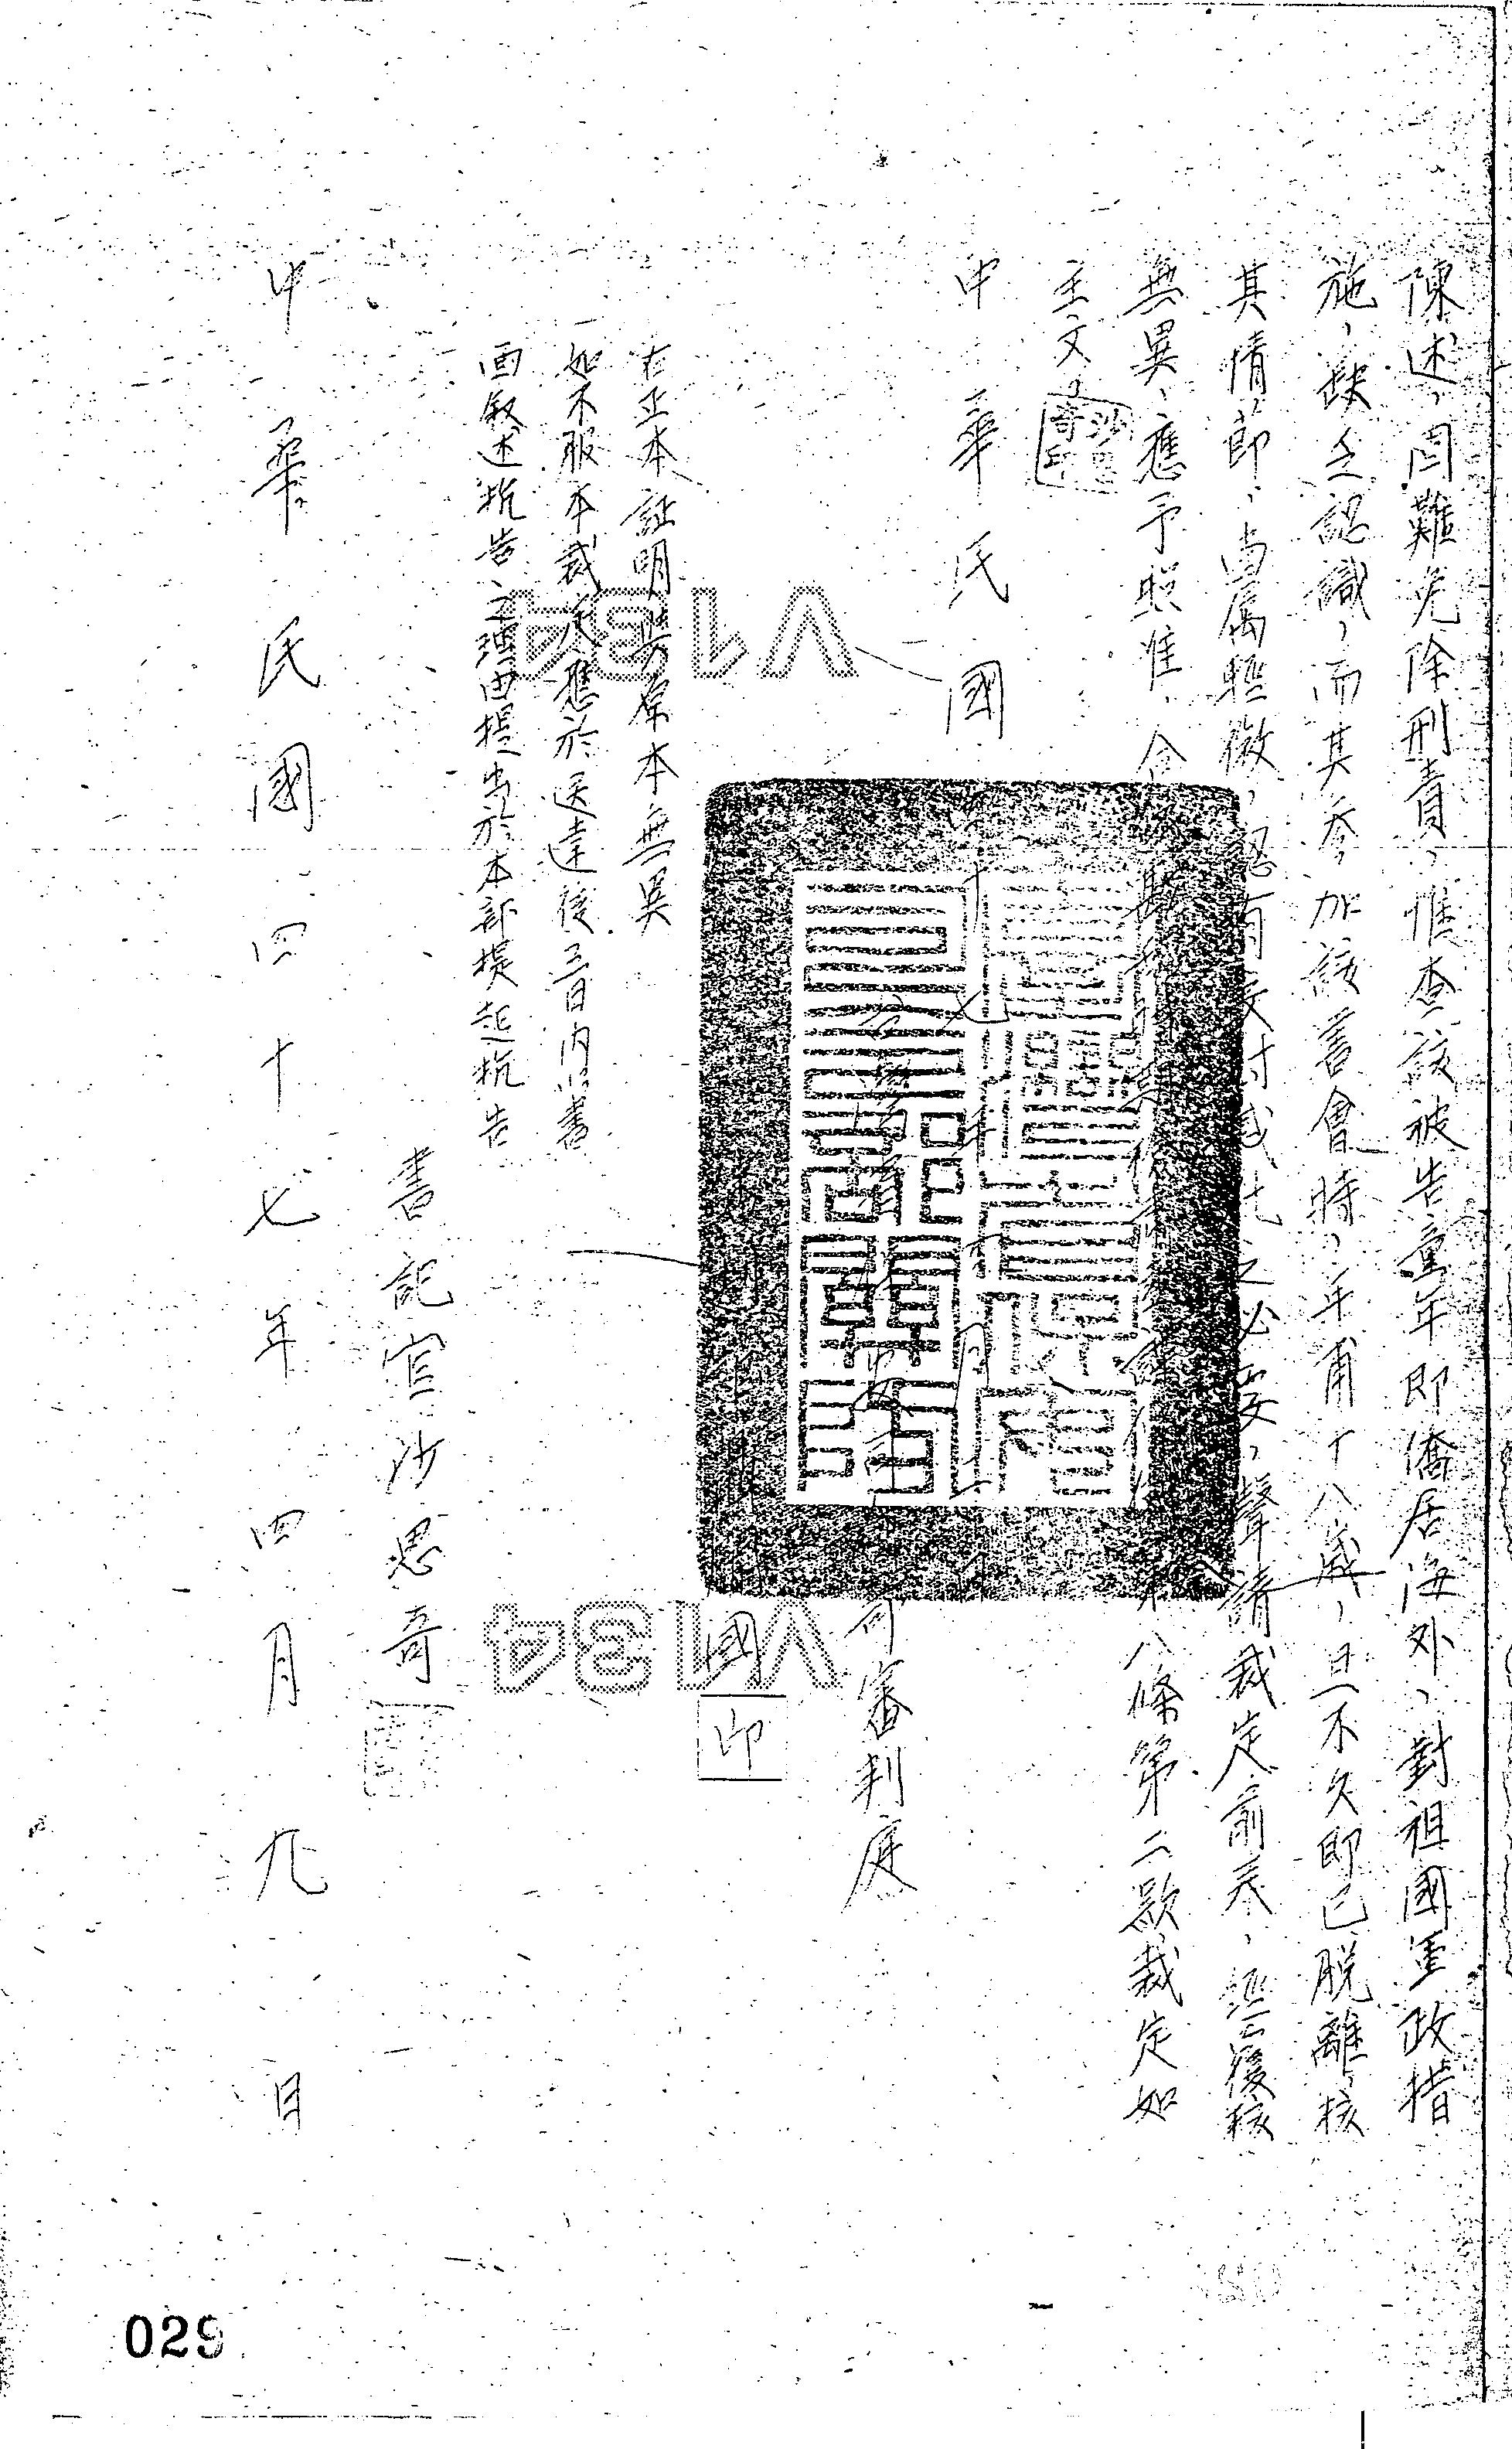 陳述,固難免除刑責,惟查該被告童年即僑居海外,對祖國軍政措
施,缺乏認識,而其參加該書會時,年甫十八歲,且不久即已脫離,核
其情節,尚屬輕微,認有交付感化之必要,聲請裁定前來,經復核
無異,應予照准,合 八條第二款裁定如
主文
中華民國
審判庭
國
印
右正本証明與原本無異
如不服本裁定應於送達後 日內以書
面敘述抗告之理由提出於本部提起抗告
書記官沙思奇
中華民國四十七年四月九日
V134
V134
029